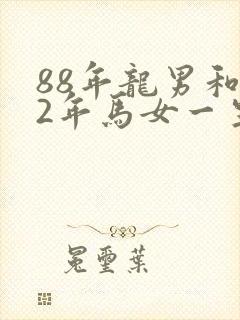 88年龍男和
2年馬女一
冕璽葉